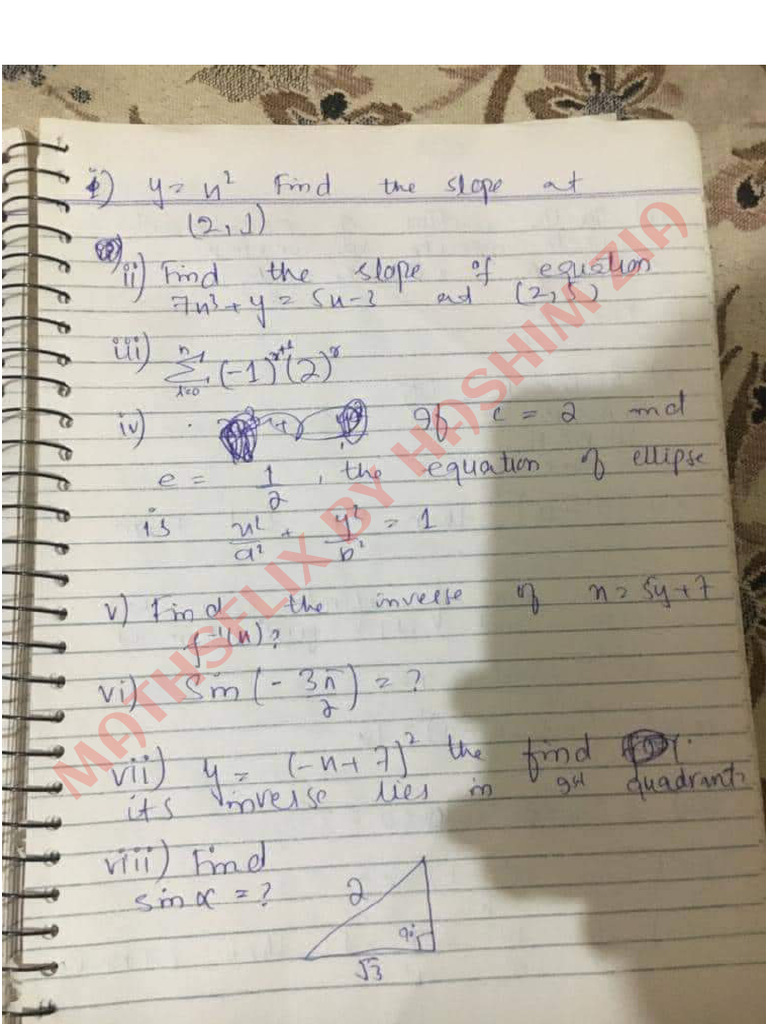 i) y = x² Find the slope at
(2,1)
ii) Find the slope of equation
7x³ + y = 5x - 3 at (2,5)
iii) (-1)ʳ⁺¹(2)ʳ
iv) If c = 2 and
e = 1/2, the equation of ellipse
is x²/a² + y²/b² = 1
v) Find the inverse of x = 5y + 7
f⁻¹(x)?
vi) Sin(-3π/2) = ?
vii) y = (-x + 7)² the find
its inverse lies in quadrant
viii) Find
sin α = ?
2
90
√3
MATHSFLIX BY HASHIM ZIA